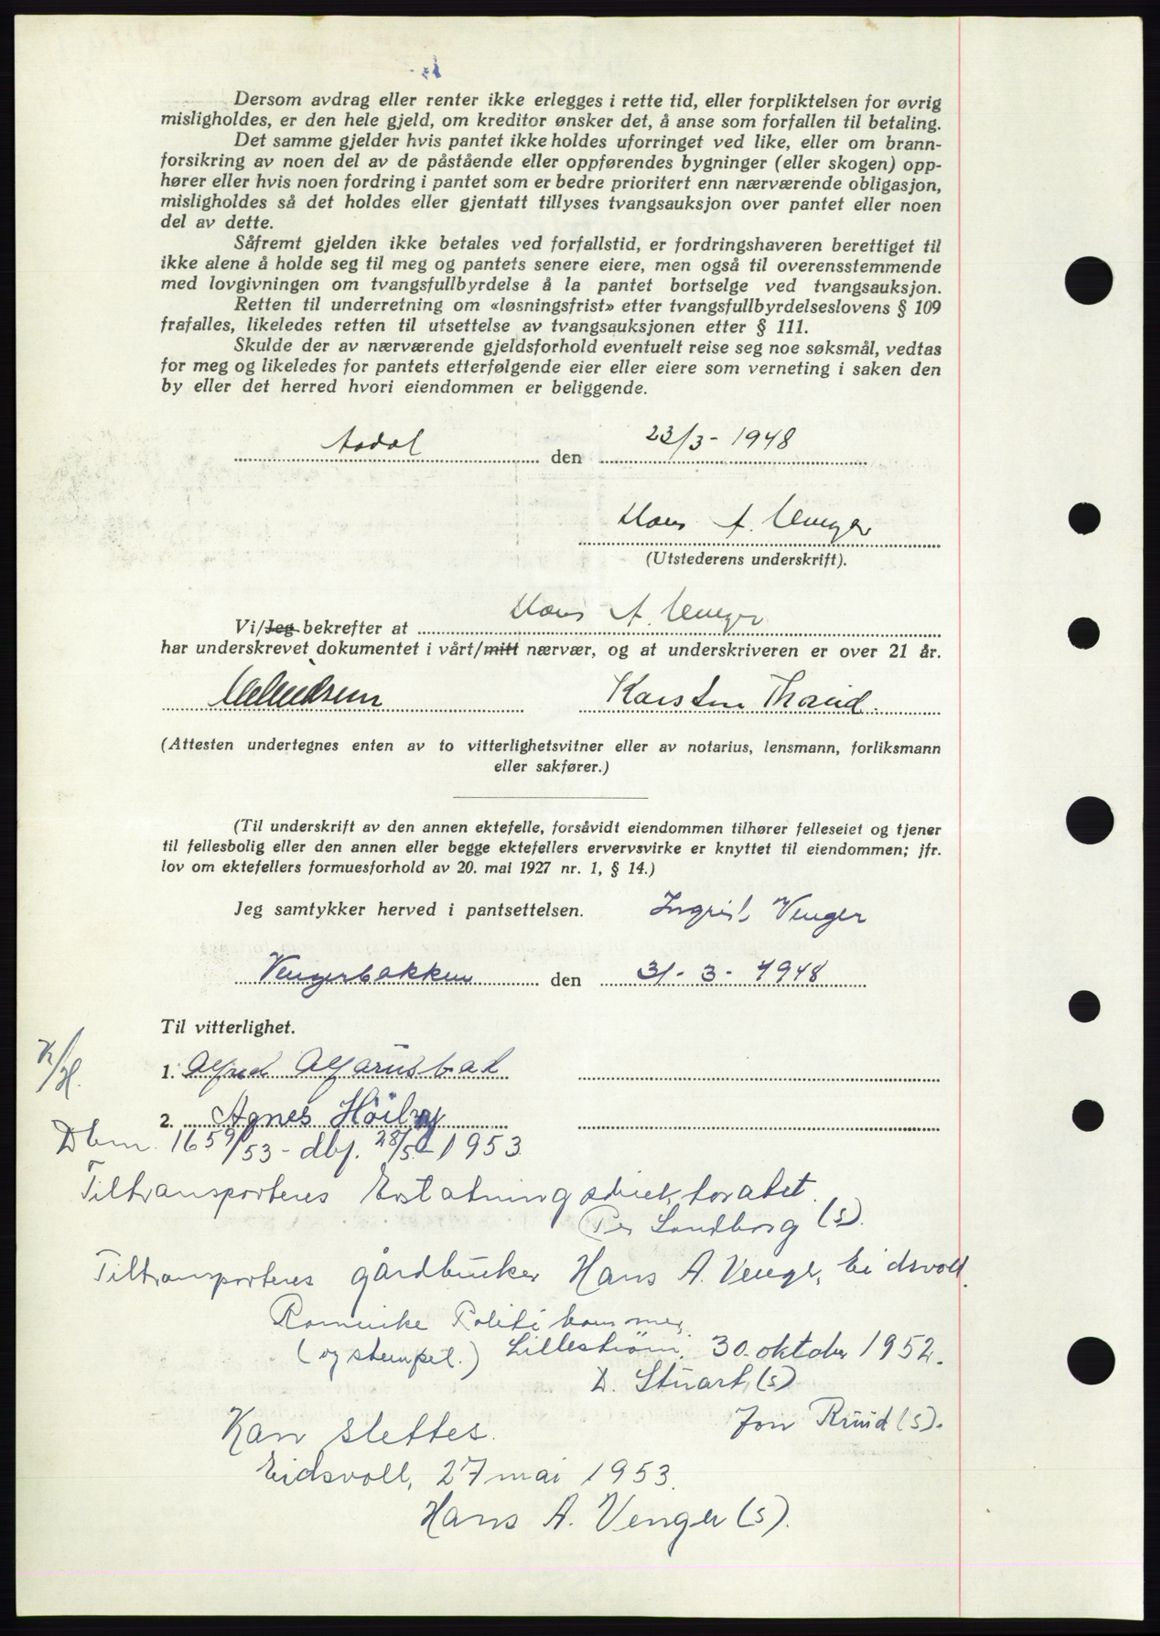 Dersom avdrag eller renter ikke erlegges i rette tid, eller forpliktelsen for øvrig
misligholdes, er den hele gjeld, om kreditor ønsker det, å anse som forfallen til betaling.
Det samme gjelder hvis pantet ikke holdes uforringet ved like, eller om brann-
forsikring av noen del av de påstående eller oppførendes bygninger (eller skogen) opp-
hører eller hvis noen fordring i pantet som er bedre prioritert enn nærværende obligasjon,
misligholdes så det holdes eller gjentatt tillyses tvangsauksjon over pantet eller noen
del av dette.
Såfremt gjelden ikke betales ved forfallstid, er fordringshaveren berettiget til
ikke alene å holde seg til meg og pantets senere eiere, men også til overensstemmende
med lovgivningen om tvangsfullbyrdelse å la pantet bortselge ved tvangsauksjon.
Retten til underretning om «løsningsfrist» etter tvangsfullbyrdelseslovens § 109
frafalles, likeledes retten til utsettelse av tvangsauksjonen etter § 111.
Skulde der av nærværende gjeldsforhold eventuelt reise seg noe søksmål, vedtas
for meg og likeledes for pantets etterfølgende eier eller eiere som verneting i saken den
by eller det herred hvori eiendommen er beliggende.
den 23/3- 1948
Hans A. Venger
(Utstederens underskrift).
Vi/Jeg bekrefter at Hans A. Venger
har underskrevet dokumentet i vårt/mitt nærvær, og at underskriveren er over 21 år.
Karsten Thorud.
(Attesten undertegnes enten av to vitterlighetsvitner eller av notarius, lensmann, forliksmann
eller sakfører.)
(Til underskrift av den annen ektefelle, forsåvidt eiendommen tilhører felleseiet og tjener
til fellesbolig eller den annen eller begge ektefellers ervervsvirke er knyttet til eiendommen; jfr.
lov om ektefellers formuesforhold av 20. mai 1927 nr. 1, § 14.)
Jeg samtykker herved i pantsettelsen. Ingrid Venger
Vengerbakken den 31-3-1948
Til vitterlighet.
1. Alfred
K/H.
2. Agnes Höiby
Dbnr. 1659/53 - dbf. 28/5-1953
Tiltransporteres Erstatningsdirektoratet.
Per Sandborg (s).
Tiltransporteres gårdbruker Hans A. Venger, Eidsvoll.
Romerike Politikammer
(og stempel.) Lillestrøm, 30. oktober 1952.
D. Stuart (s)
Jon Ruud (s).
Kan slettes.
Eidsvoll, 27 mai 1953.
Hans A. Venger (s).